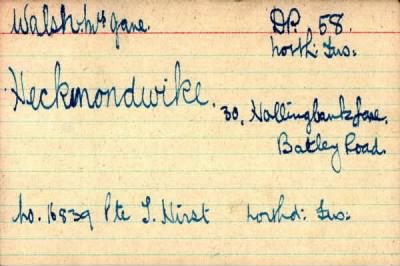 Walsh. Mrs Jane. DP. 58.
North: Fus.
Heckmondwike. 30, Hollingbank Lane.
Batley Road.
No. 16839 Pte T. Hirst Northd: Fus: